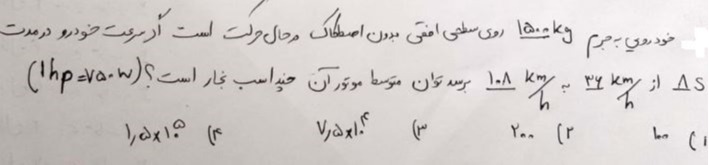 خودروی به جرم ۱۵۰۰kg روی سطحی افقی بدون اصطکاک درحال حرکت است اگر سرعت خودرو درمدت
۸s از ۳۶ km/h به ۱۰۸ km/h برسد توان متوسط موتور آن چند اسب بخار است؟ (۱hp=۷۵۰w)
۱) ۱۰۰ ۲) ۲۰۰ ۳) ۷٫۵×۱۰^۴ ۴) ۱٫۵×۱۰^۵